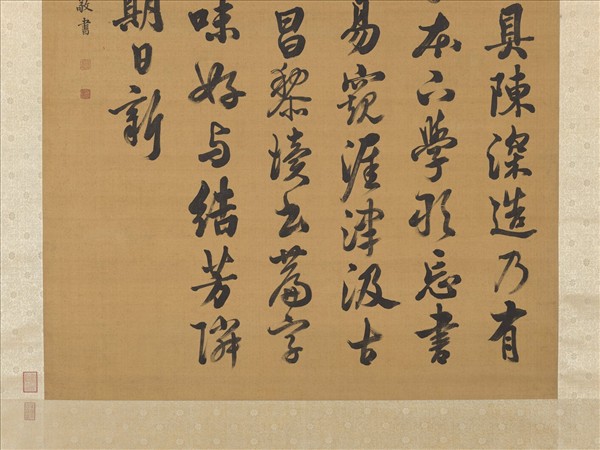 具陳深造乃有
本學忘書
易窺涯津汲古
昌黎讀書字
味好与結芳隣
期日新
敬書